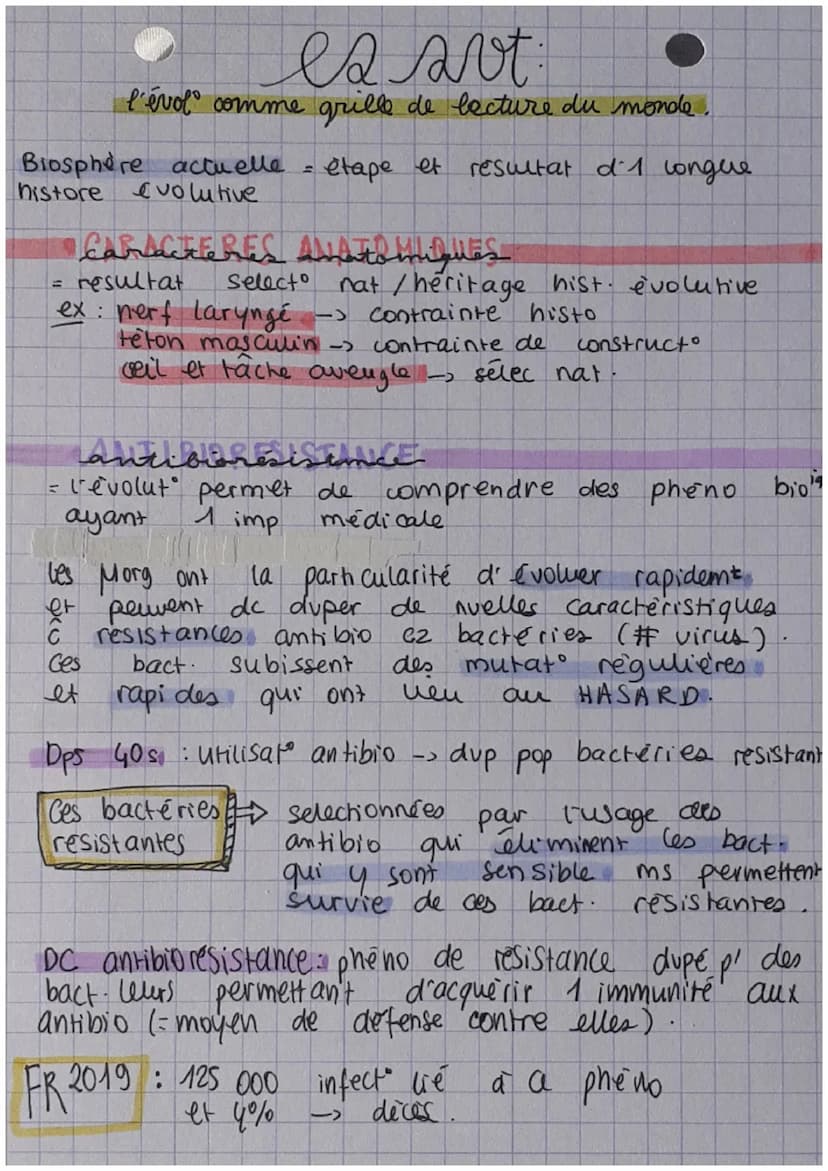 es svt :
l'évol° comme grille de lecture du monde.
Biosphère actuelle = étape et résultat d'1 longue
histore évolutive
CARACTERES ANATOMIQUES
caractères anatomiques
= résultat select° nat / héritage hist. évolutive
ex : nerf laryngé -> contrainte histo
téton masculin -> contrainte de construct°
œil et tâche aveugle -> sélec nat.
ANTIBIORESISTANCE
antibiorésistance
= l'évolut° permet de comprendre des phéno bioiq
ayant 1 imp médicale
les µorg ont la particularité d'évoluer rapidemt
et peuvent dc dvper de nvelles caractéristiques
c̄ résistances antibio cz bactéries (# virus).
Ces bact. subissent des mutat° régulières
et rapides qui ont lieu au HASARD.
Dps 40s : utilisat° antibio -> dvp pop bactéries résistant
Ces bactéries => selectionnées par l'usage des
résistantes antibio qui éliminent les bact.
qui y sont sensible ms permettent
survie de ces bact. résistantes.
DC antibiorésistance : phéno de résistance dvpé p' des
bact. leurs permettant d'acquérir 1 immunité aux
antibio (= moyen de défense contre elles).
FR 2019 : 125 000 infect° lié à ce phéno
et 4% -> décès.